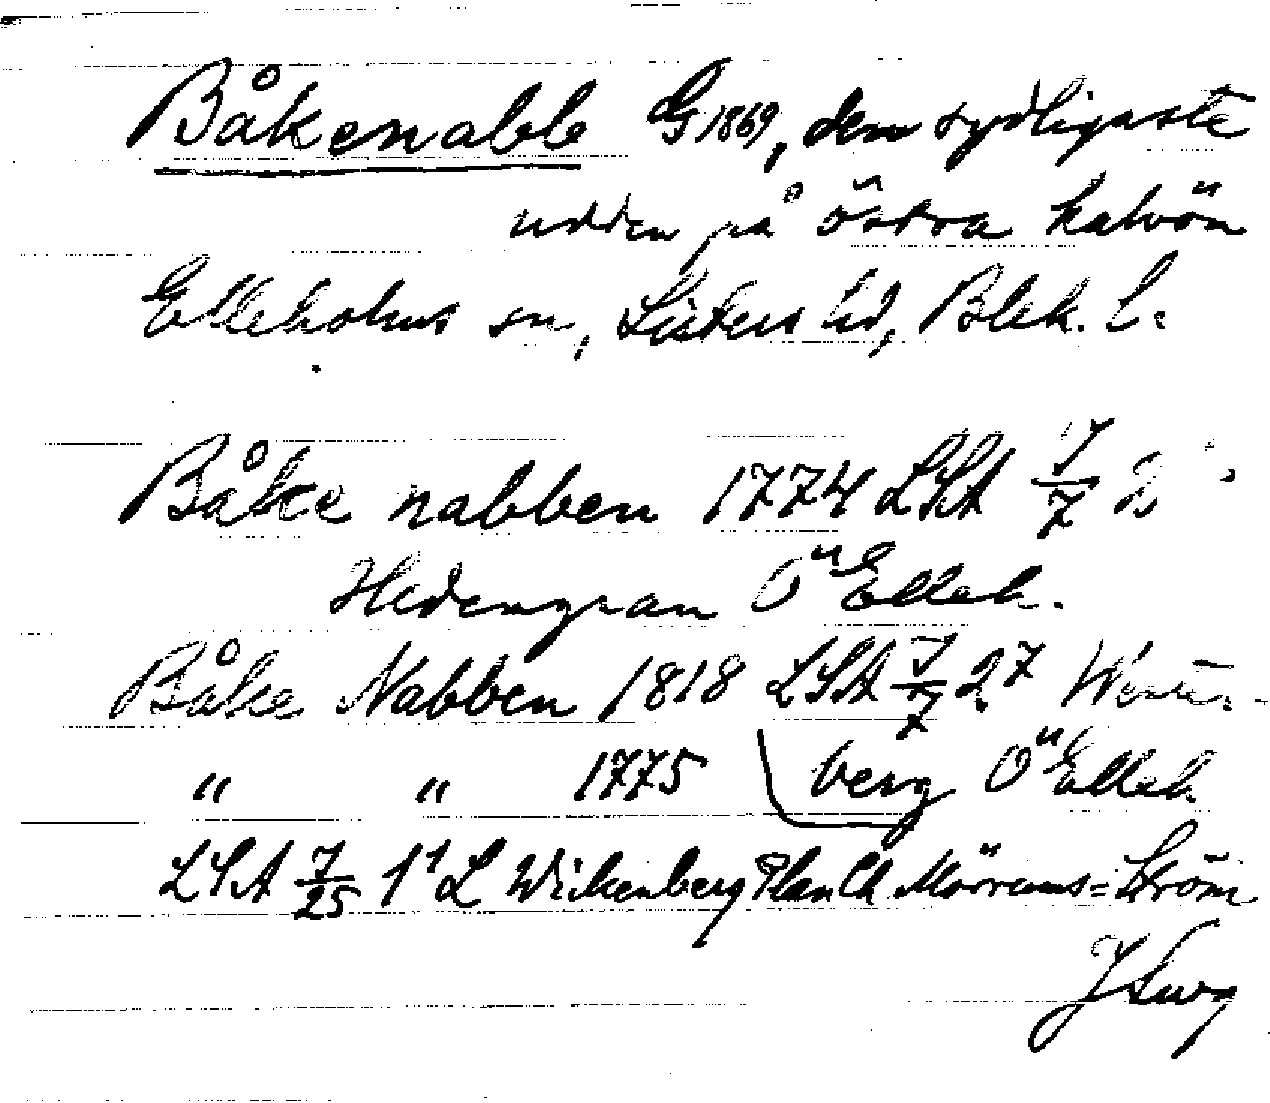 Båkenabb G 1869, den sydligaste
udden på östra halvön
Elleholms sn, Listers hd, Blek. l.
Båke nabben 1774 LSA 7/7 2
Hedengran Ön Elleh.
Båke Nabben 1818 LSA 7/7 27 Wester-
" " 1775 berg Ön Elleh.
LSA 7/25 1 L Wikenberg Mörrums=Ström